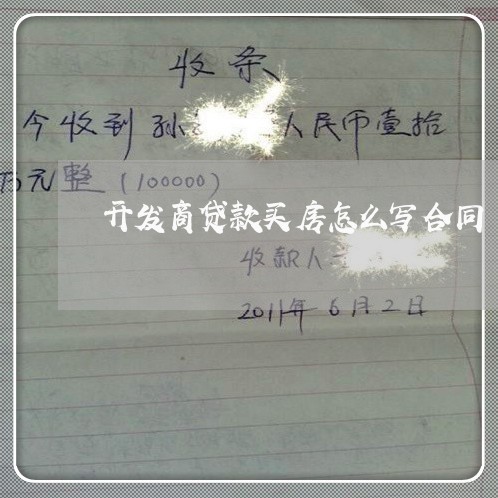 收条
今收到孙 人民币壹拾
万元整(100000)
开发商贷款买房怎么写合同
收款人
2011年6月2日